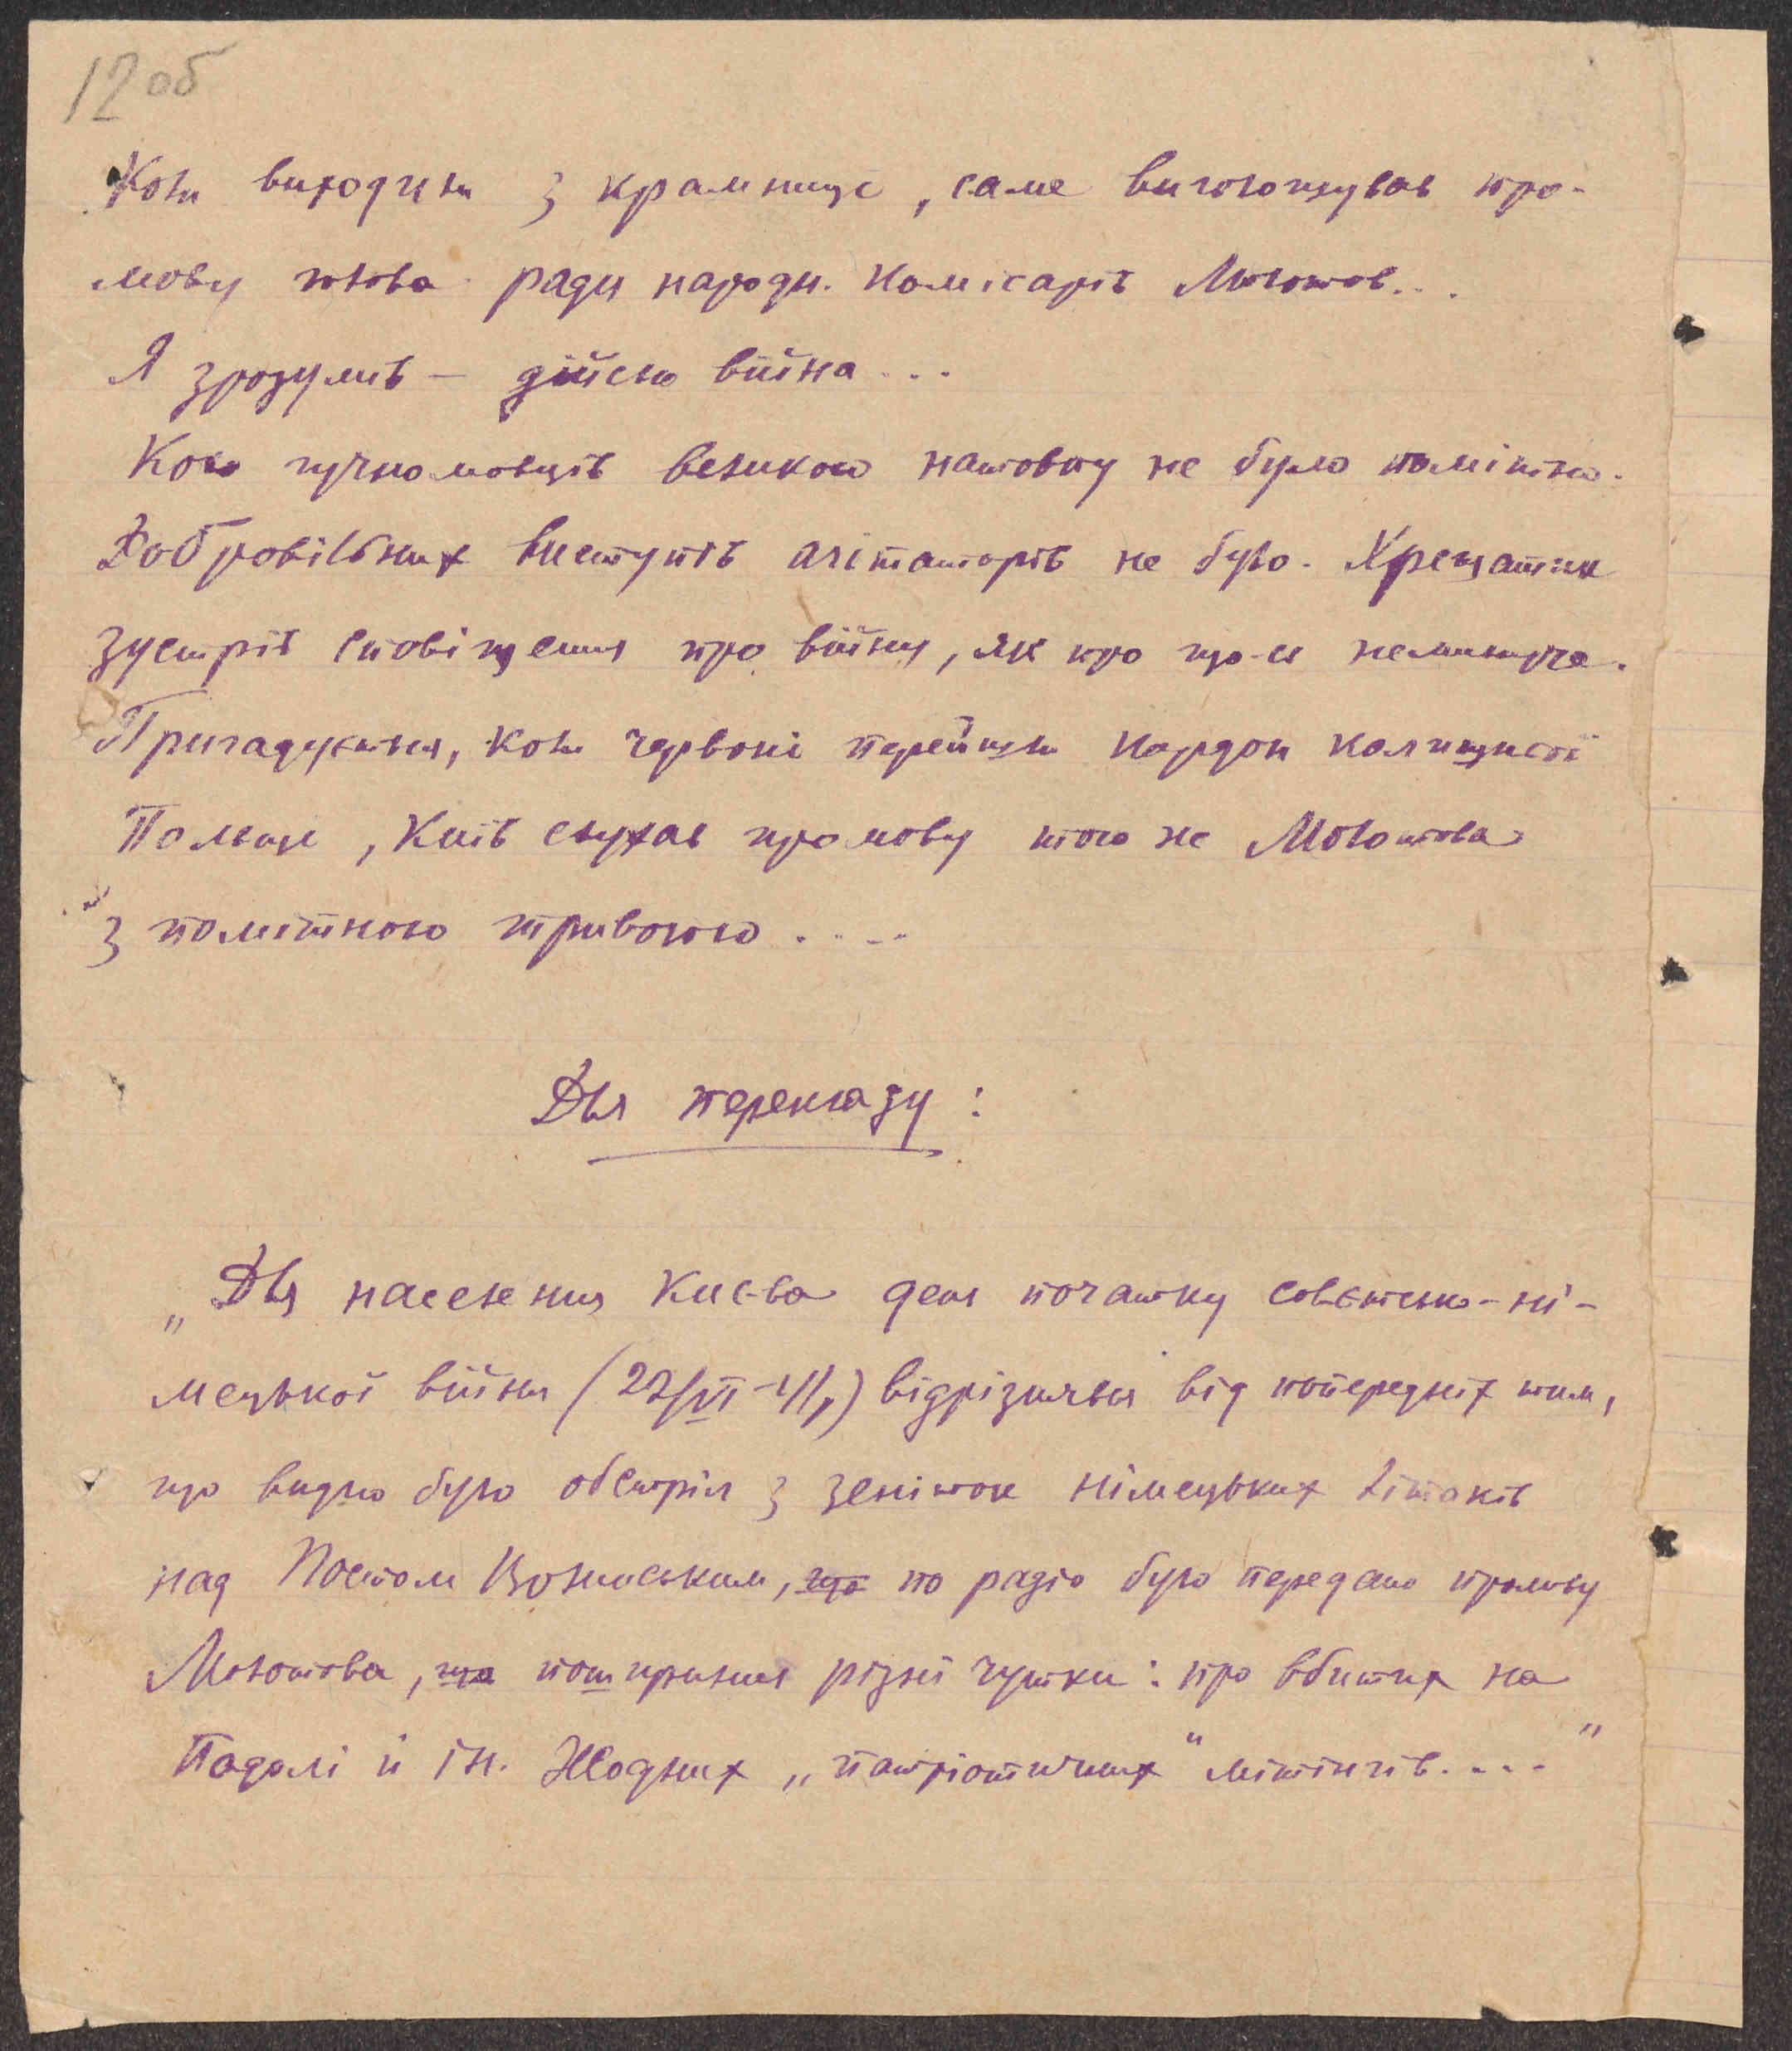 12 об
Коли виходили з крамниці, саме виголошував про-
мову голова ради народн. комісарів Молотов...
Я зрозумів — дійсно війна...
Коло гучномовців великого натовпу не було помітно.
Добровільних виступів агітаторів не було. Хрещатик
зустрів сповіщення про війну, як про що-сь неминуче.
Пригадується, коли червоні перейшли кордон колишньої
Польщи, Київ слухав промову того же Молотова
з помітною тривогою....
Для перекладу:
„Для населення Києва день початку совєтсько-ні-
мецької війни (22/VI-41 р) відрізнявся від попередніх тим,
що видно було обстріл з зеніток німецьких літаків
над Постом Волинським, що по радіо було передано промову
Молотова, що поширилися різні чутки: про вбитих на
Подолі й ін. Жодних „патріотичних" мітингів...."